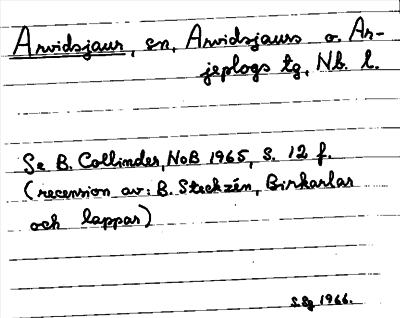 Arvidsjaur, sn, Arvidsjaurs o. Ar-
jeplogs tg, Nb. l.
Se B. Collinder, NoB 1965, S. 12 f.
(recension av: B. Steckzén, Birkarlar
och lappar)
1966.